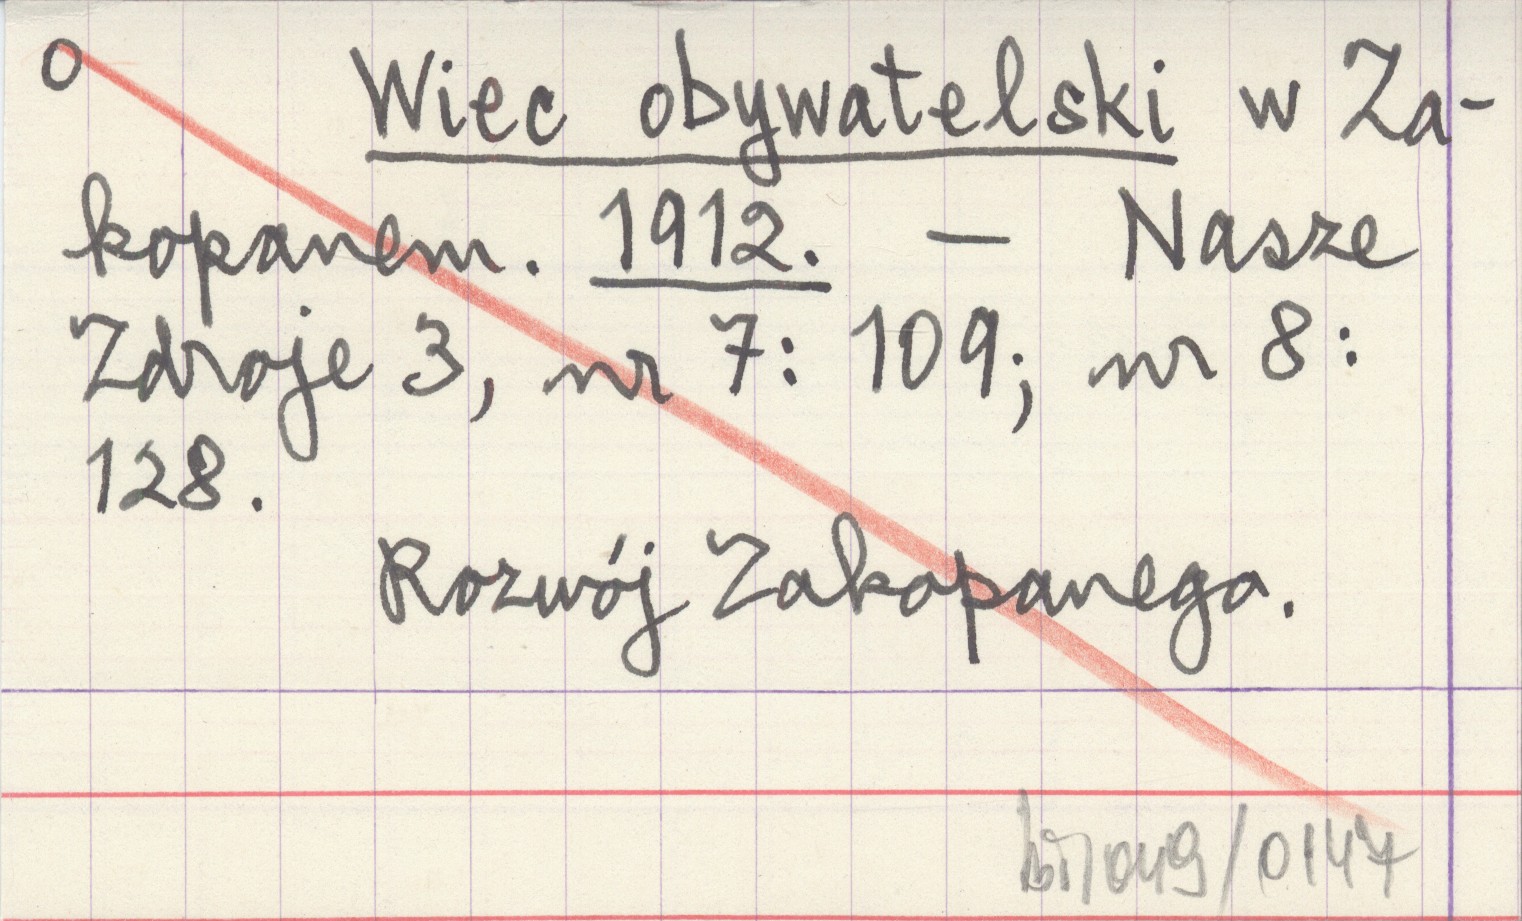 o Wiec obywatelski w Za-
kopanem. 1912. — Nasze
Zdroje 3, nr 7: 109; nr 8:
128.
Rozwój Zakopanego.
049/0147